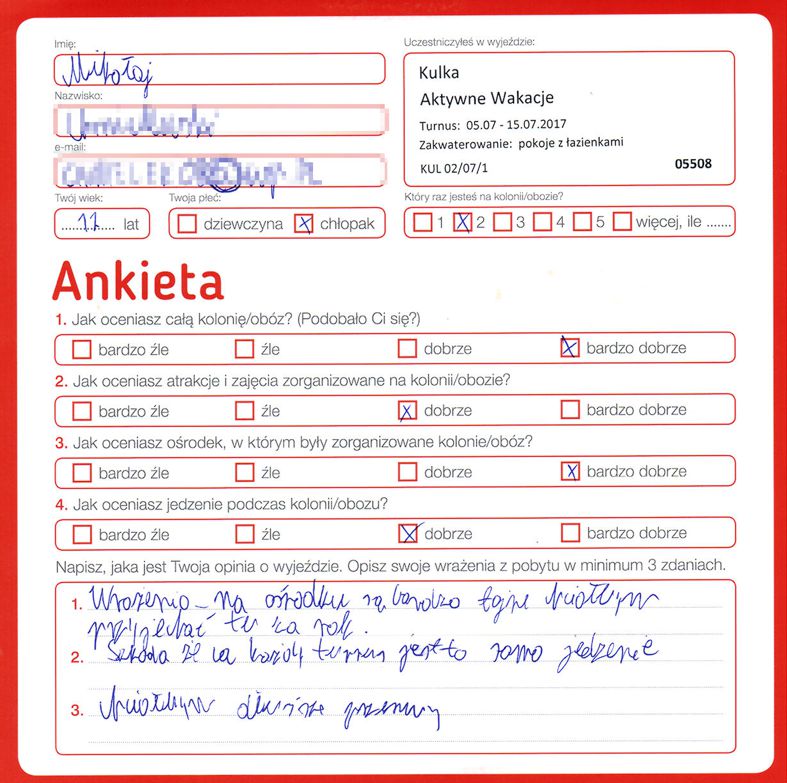 Imię:
Mikołaj
Nazwisko:
e-mail:
Twój wiek:
11 lat
Twoja płeć:
dziewczyna chłopak
Uczestniczyłeś w wyjeździe:
Kulka
Aktywne Wakacje
Turnus: 05.07 - 15.07.2017
Zakwaterowanie: pokoje z łazienkami
KUL 02/07/1 05508
Który raz jesteś na kolonii/obozie?
1 2 3 4 5 więcej, ile .......
Ankieta
1. Jak oceniasz całą kolonię/obóz? (Podobało Ci się?)
bardzo źle źle dobrze bardzo dobrze
2. Jak oceniasz atrakcje i zajęcia zorganizowane na kolonii/obozie?
bardzo źle źle dobrze bardzo dobrze
3. Jak oceniasz ośrodek, w którym były zorganizowane kolonie/obóz?
bardzo źle źle dobrze bardzo dobrze
4. Jak oceniasz jedzenie podczas kolonii/obozu?
bardzo źle źle dobrze bardzo dobrze
Napisz, jaka jest Twoja opinia o wyjeździe. Opisz swoje wrażenia z pobytu w minimum 3 zdaniach.
1. Wrażenia na ośrodku są bardzo fajne
przyjechać tu za rok.
2. Szkoda że na każdy turnus jest to samo jedzenie
3.